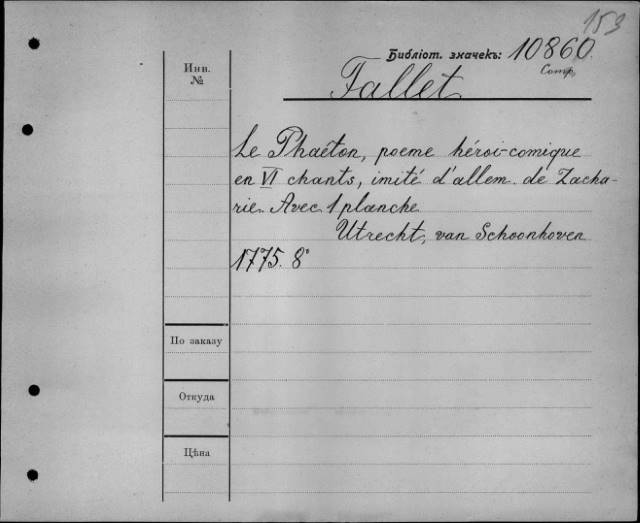 153
Библіот. значекъ: 10860.
Comp.
Инв.
№
Fallet
Le Phaéton, poeme héroi-comique
en VI chants, imité d'allem. de Zacha-
rie. Avec 1 planche
Utrecht, van Schoonhoven
1775. 8°
По заказу
Откуда
Цѣна